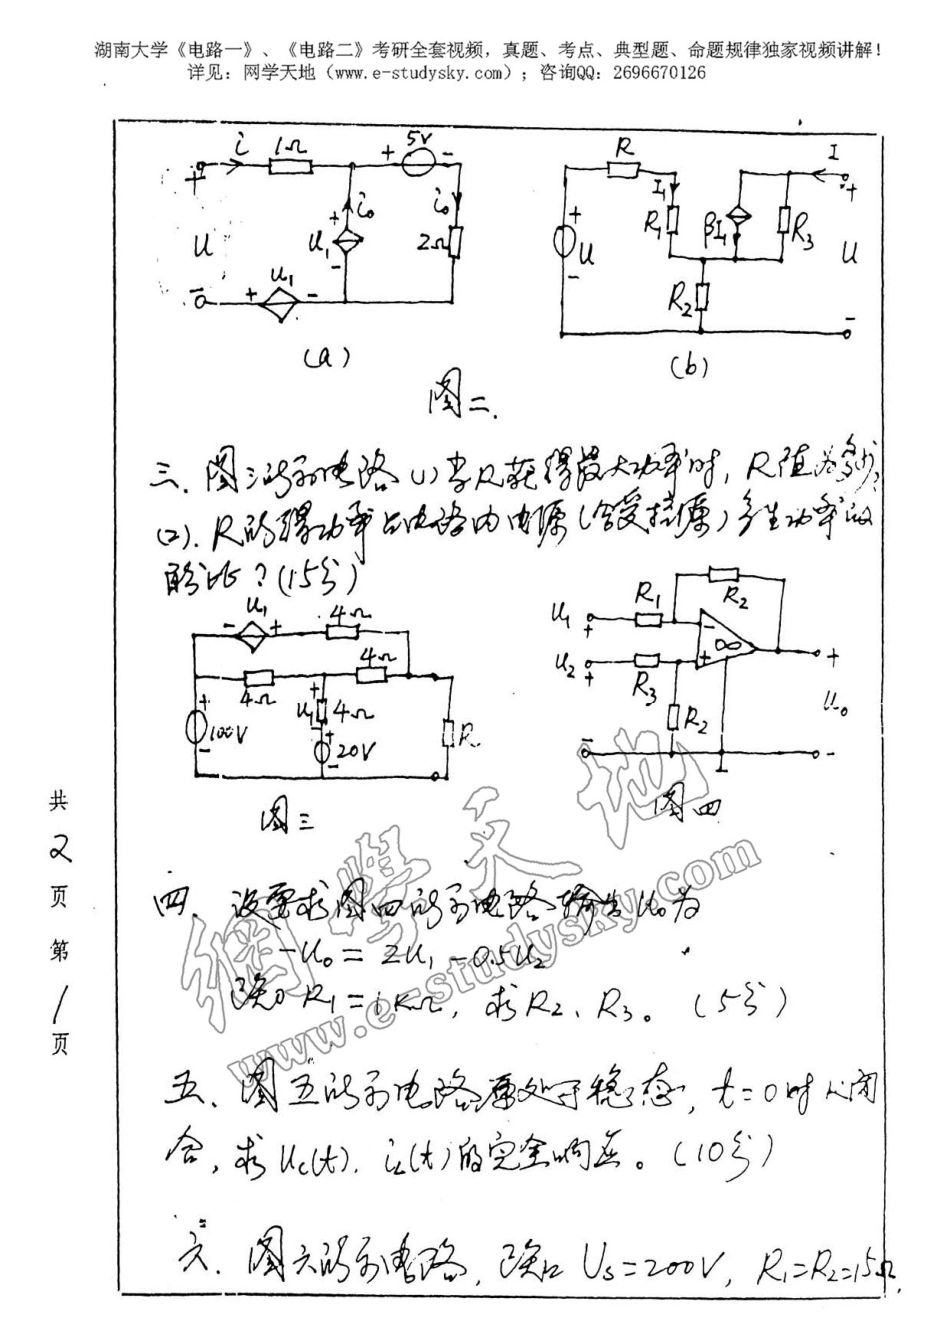 湖南大学《电路一》、《电路二》考研全套视频，真题、考点、典型题、命题规律独家视频讲解！
详见：网学天地（www.e-studysky.com）；咨询QQ：2696670126
i 1Ω + 5V -
+ U -
+ U₁ -
i₀ i₀ 2Ω
+ U₁ -
(a)
R I₁ R₁ βI₁ R₃ I
+ U - R₂ + U -
(b)
图二.
三. 图三所示电路 (1) 当R获得最大功率时，R值为多少？
(2). R所得功率占电路内电源(含受控源)产生功率的
百分比？(15分)
- U₁ + 4Ω
4Ω 4Ω
+ 100V - + U₁ 4Ω
+ 20V - R
图三
U₁ + R₁ R₂
U₂ + R₃ R₂
- + ∞ + U₀ -
图四
四. 设要求图四所示电路输出U₀为
-U₀ = 2U₁ - 0.5U₂
已知 R₁ = 1KΩ, 求R₂、R₃。 (5分)
五. 图五所示电路原处于稳态, t=0时K闭
合, 求Uc(t). iL(t)的完全响应。(10分)
六. 图六所示电路, 已知 Us=200V, R₁=R₂=15Ω,
共
2
页
第
1
页
網學天地
www.e-studysky.com